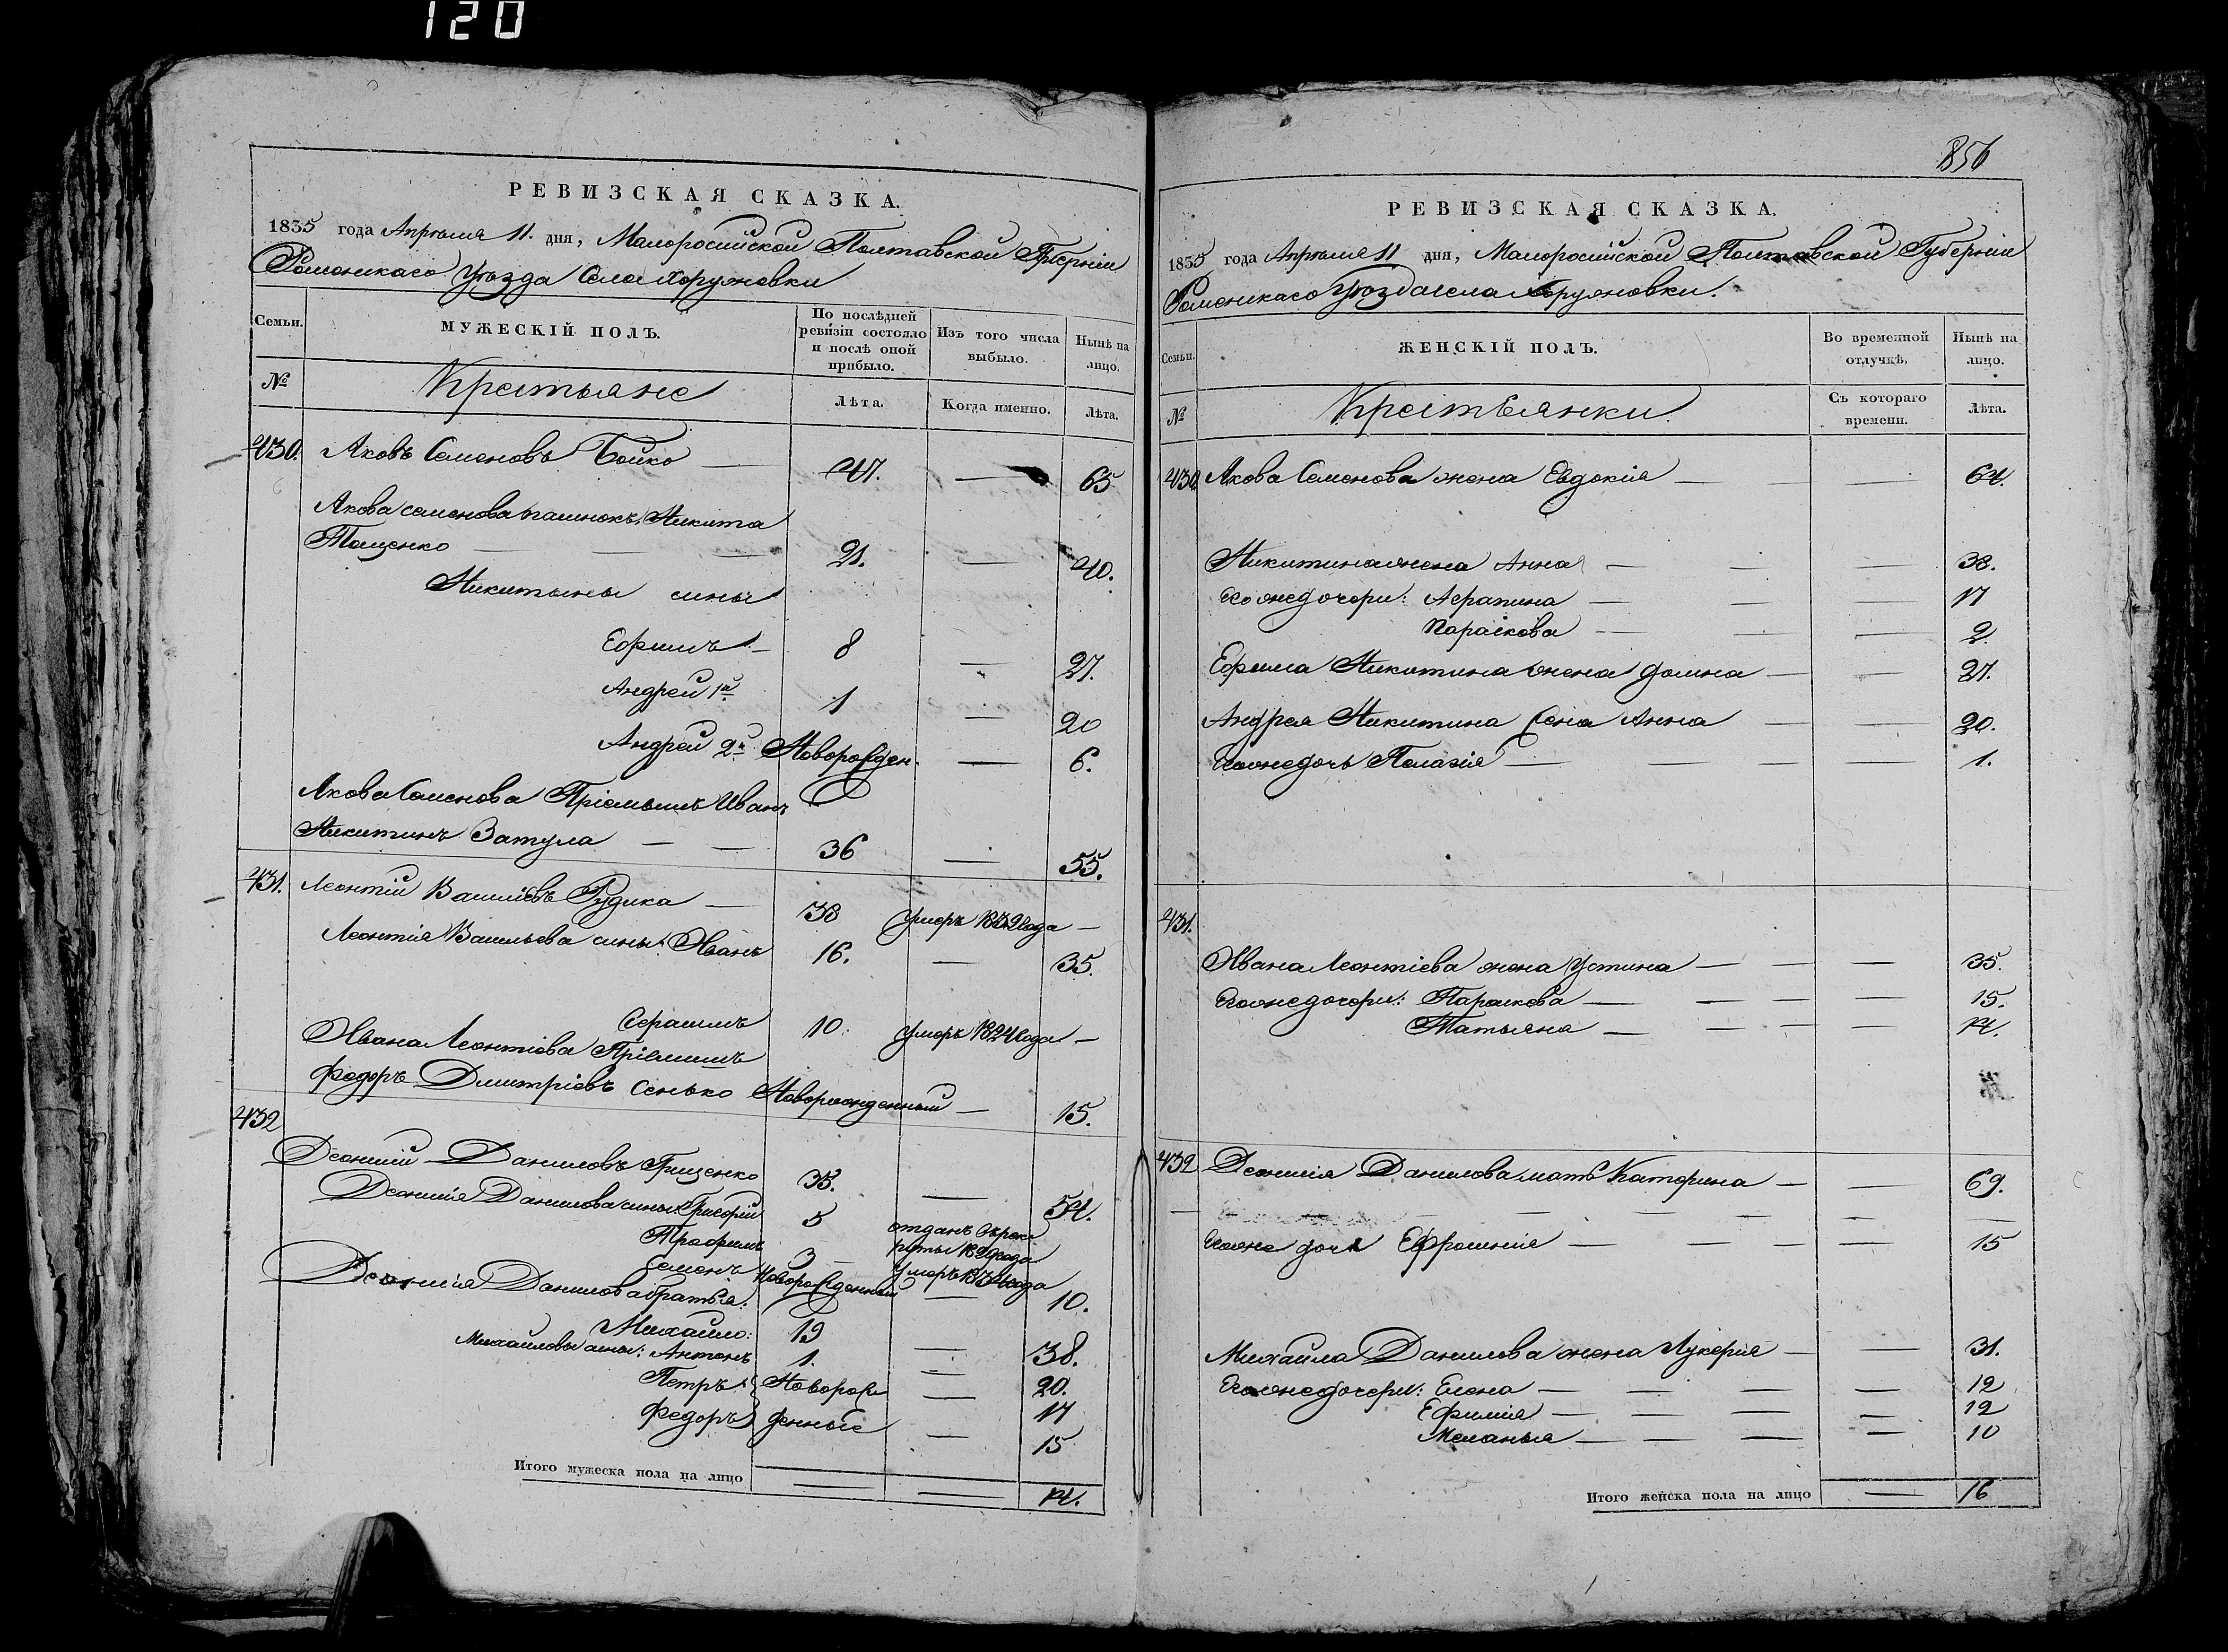 120
РЕВИЗСКАЯ СКАЗКА.
1835 года Апрѣля 11. дня, Малоросийской Полтавской Губерніи
Роменскаго Уѣзда Села Хоружовки
Семьи.
МУЖЕСКІЙ ПОЛЪ.
По послѣдней ревизіи состояло и послѣ оной прибыло.
Изъ того числа выбыло.
Нынѣ на лицо.
№
Крестьяне
Лѣта.
Когда именно.
Лѣта.
430. Яковъ Семеновъ Бойко — 47. — 65
Якова Семенова Никита
Тащенко — — — 21. — 40.
Никитины сины
Ефимъ — 8 — 27.
Андрей 1й 1 — 20
Андрей 2й Новорожден. — 6.
Якова Семенова Пріемышъ Иванъ
Никитинъ Затула — — 36 — 55.
431. Леонтій Василіевъ Рудика — 38 умеръ 1832 года —
Леонтія Васильева сины: Иванъ 16. — 35.
Герасимъ 10. умеръ 1824 года —
Ивана Леонтіева Пріемышъ
Федоръ Дмитріевъ Сенько Новорожденный — 15.
432
Деонисій Даниловъ Грищенко 35. — 54.
Деонисія Данилова сины: Григорій 5 отданъ въ рек
руты 1829 года
Трофимъ 3 — умеръ 1834 года
Семенъ Новорожденный — 10.
Деонисія Данилова братья:
Михайло: 19 — 38.
Михайловы сины: Антонъ 1. — 20.
Петръ Новорож — 17
Федоръ денные — 15
Итого мужеска пола на лицо — — 14.
856
РЕВИЗСКАЯ СКАЗКА.
1835 года Апрѣля 11 дня, Малоросийской Полтавской Губерніи
Роменскаго Уѣзда села Хоружовки.
Семьи.
ЖЕНСКІЙ ПОЛЪ.
Во временной отлучкѣ.
Нынѣ на лицо.
№
Крестьянки.
Съ котораго времени.
Лѣта.
430 Якова Семенова жена Евдокія — — — 64.
Никитина жена Анна — — — 38.
Его же дочери: Аграпина — — — 17
Параскова — — — 2.
Ефима Никитина жена Домна — — 27.
Андрея Никитина жена Анна — — 20.
Его же дочь Пелагія — — — 1.
431.
Ивана Леонтіева жена Устина — — — 35.
Его же дочери: Параскова — — — — 15.
Татьяна — — — — 14.
432 Деонисія Данилова мать Катерина — — 69.
Его же дочь Ефросинія — — — — 15
Михайла Данилова жена Лукерія — — 31.
Его же дочери: Елена — — — — 12
Ефимія — — — — 12
Меланья — — — — 10
Итого женска пола на лицо — 16